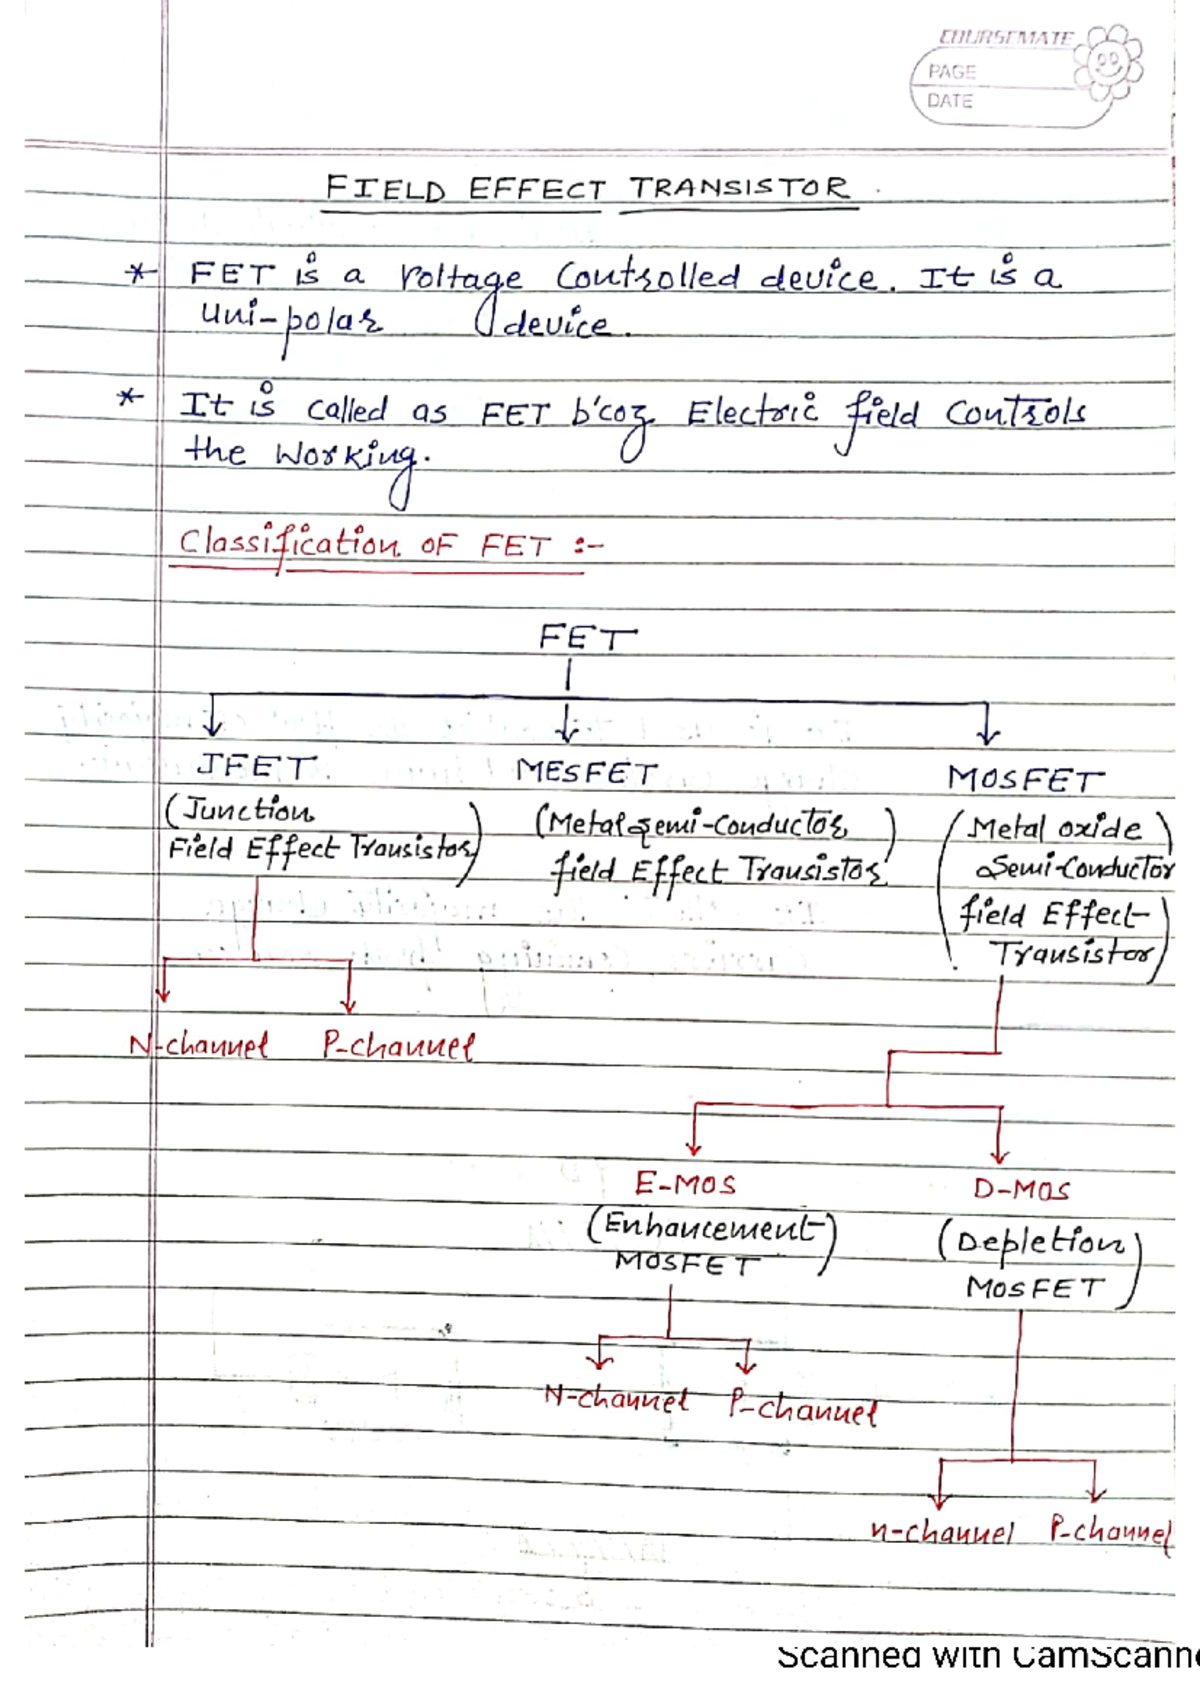 COURSEMATE
PAGE
DATE
FIELD EFFECT TRANSISTOR.
* FET is a voltage controlled device. It is a
uni-polar device.
* It is called as FET b'coz Electric field controls
the working.
Classification OF FET :-
FET
JFET MESFET MOSFET
(Junction
Field Effect Transistor)
(Metal semi-conductor
field Effect Transistor)
(Metal oxide
Semi-conductor
field Effect
Transistor)
N-channel P-channel
E-MOS D-MOS
(Enhancement
MOSFET)
(Depletion
MOSFET)
N-channel P-channel
n-channel P-channel
Scanned with CamScanne